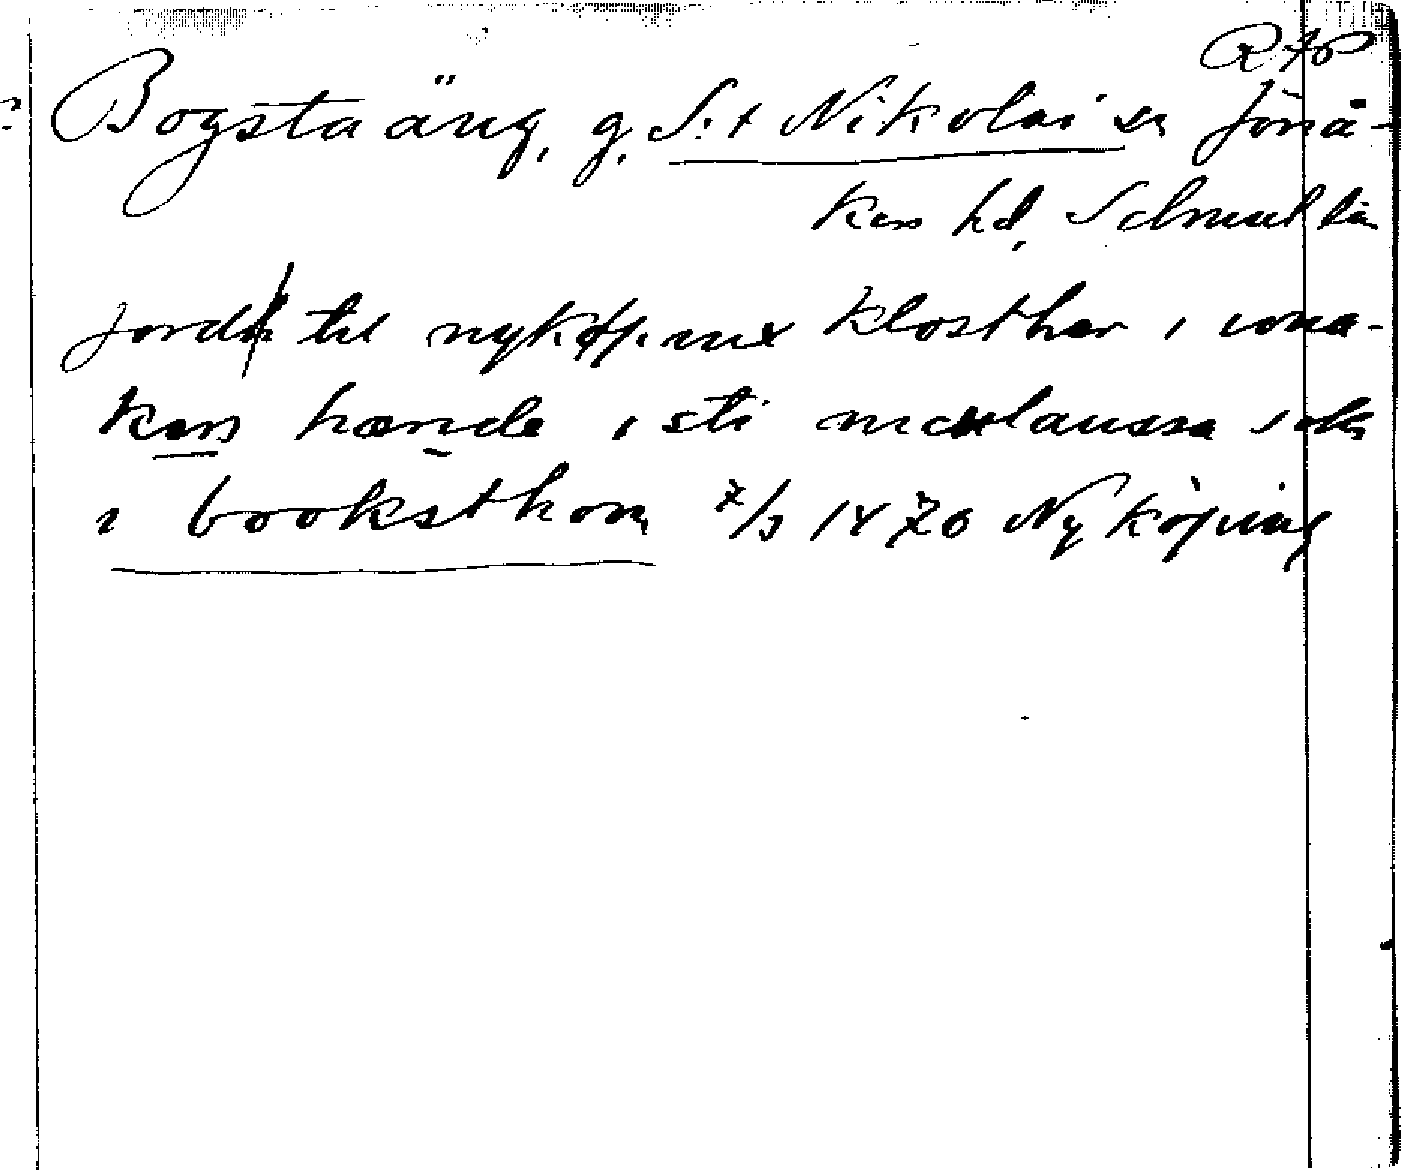 RAP
Bogsta äng, g. S:t Nikolai sn Jönå-
kers hd, Sörml län
jordh til nyköpinx klosther i iona-
kers hærnde i sti niclaussa sokn
i booksthom 7/3 1470 Nyköping